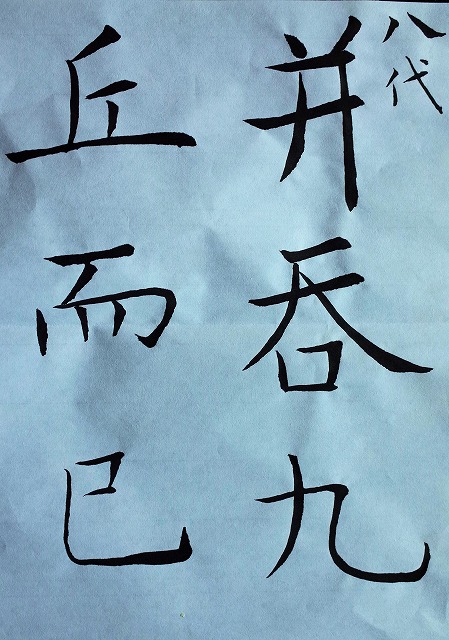 八代
并吞九
丘而已